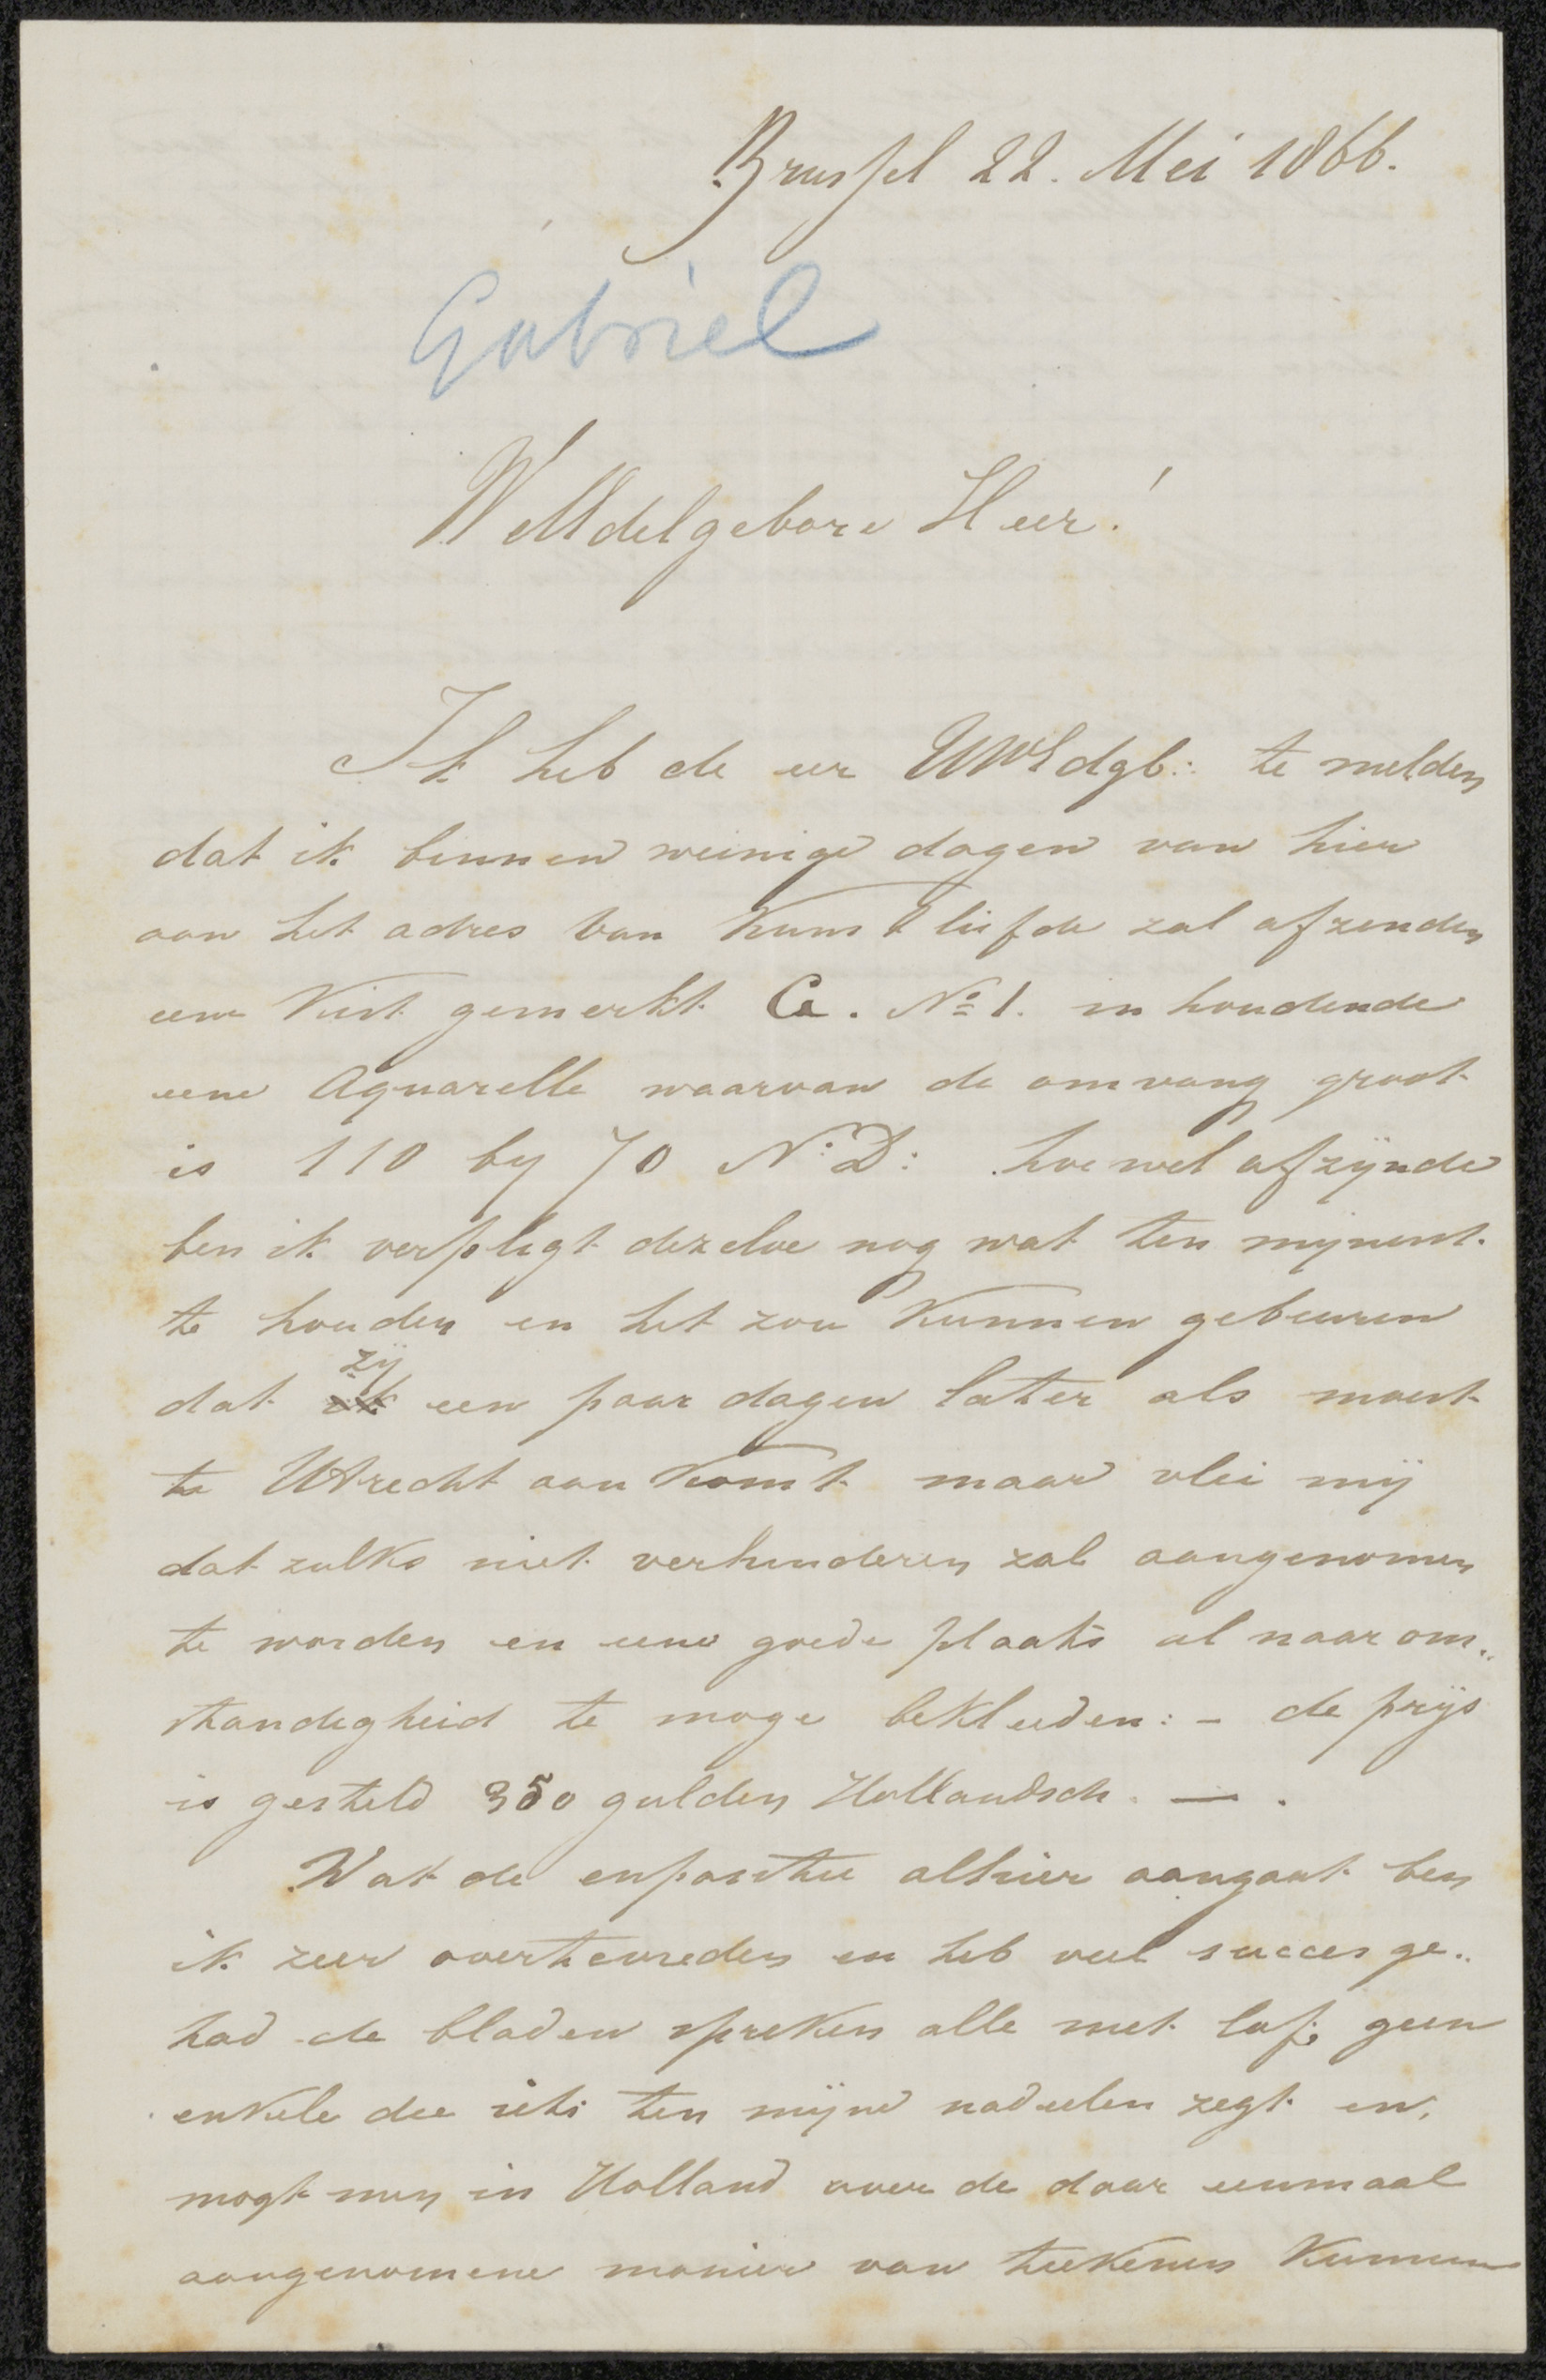 Brussel 22. Mei 1866.
Gabriel
WelEdelgebore Heer!
Ik heb de eer UWEdgb: te melden
dat ik binnen weinige dagen van hier
aan het adres van Kunstliefde zal afzenden
eene Kist gemerkt G. No 1. inhoudende
eene Aquarelle waarvan de omvang groot
is 110 by 70 N: D: hoewel afzijnde
ben ik verpligt dezelve nog wat ten mynent
te houden en het zou kunnen gebeuren
dat ik zij een paar dagen later als moest
te Utrecht aan komt maar vlei mij
dat zulks niet verhinderen zal aangenomen
te worden en eene goede plaats al naar om„
standigheid te moge bekleeden: – de prijs
is gesteld 350 gulden Hollandsch. — .
Wat de expositie alhier aangaat ben
ik zeer overtevreden en heb veel succes ge„
had de bladen spreken alle met lof, geen
enkele die iets ten mijne nadeelen zegt en,
mogt men in Holland over de daar eenmaal
aangenomene manier van teekenen kunnen